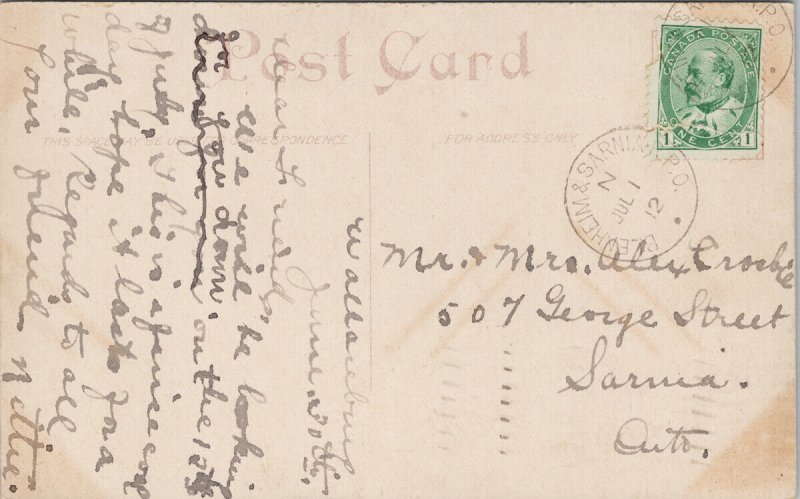 Post Card
THIS SPACE MAY BE USED FOR CORRESPONDENCE
FOR ADDRESS ONLY
CANADA POSTAGE
ONE CENT
1 1
BLENHEIM & SARNIA R.P.O.
N
JUL 1
12
R.P.O.
Wallaceburg
June 30th.
Dear Friends,
We will be lookin
for you down on the 12th
of July, this is a fine cool
day hope it lasts for a
while. Regards to all
Your friend Nettie.
Mr. & Mrs. Alex Crosbie
507 George Street
Sarnia.
Ont.